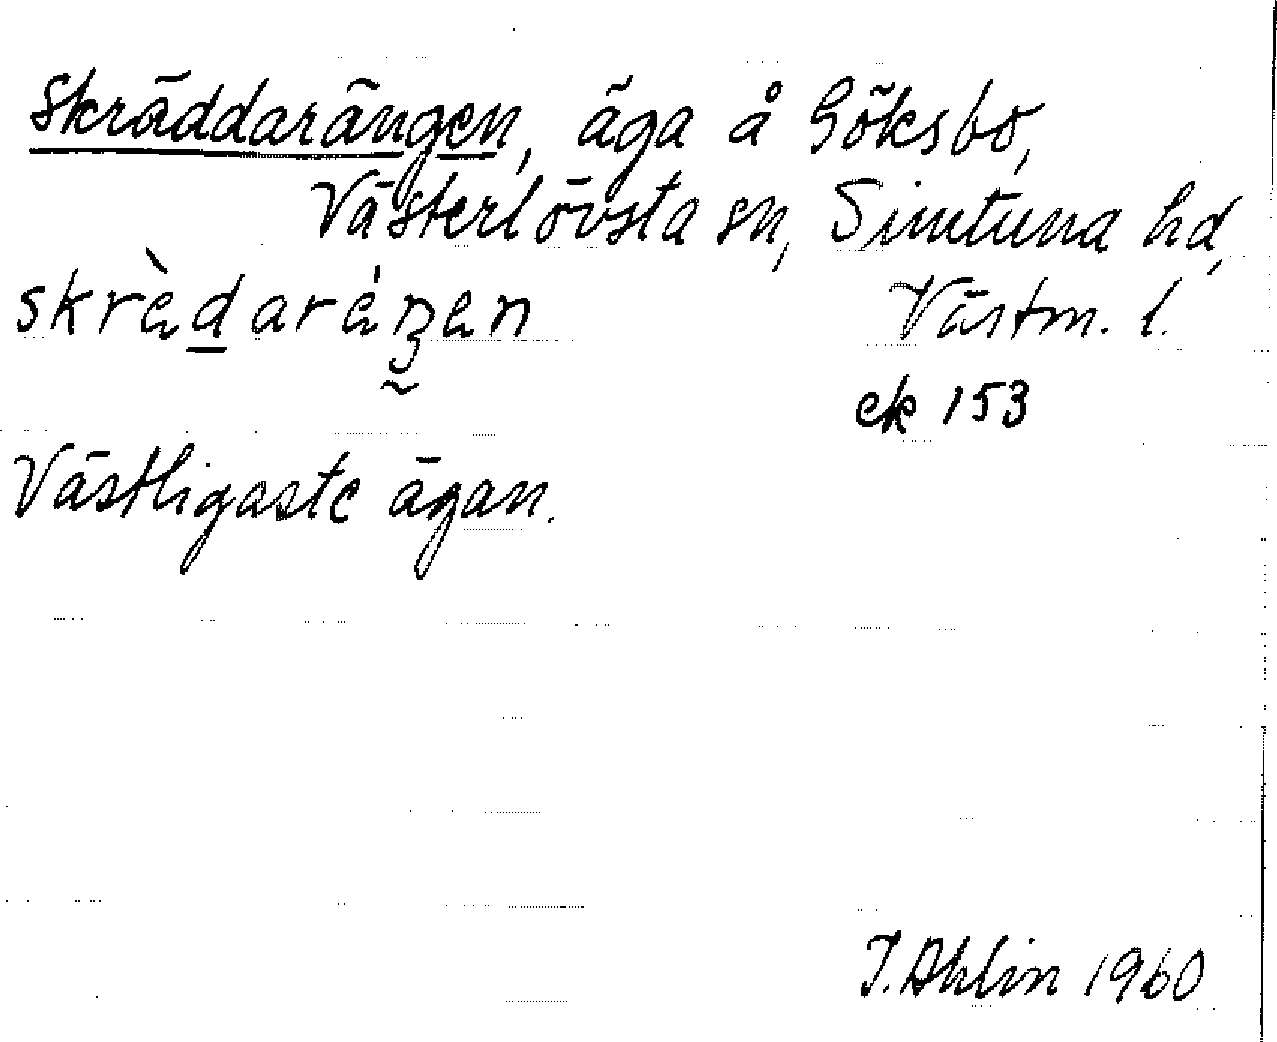 Skräddarängen, äga å Göksbo,
Västerlövsta sn, Simtuna hd,
skrædaræŋen Västm. l.
ek 153
Västligaste ägan.
I. Ahlin 1960